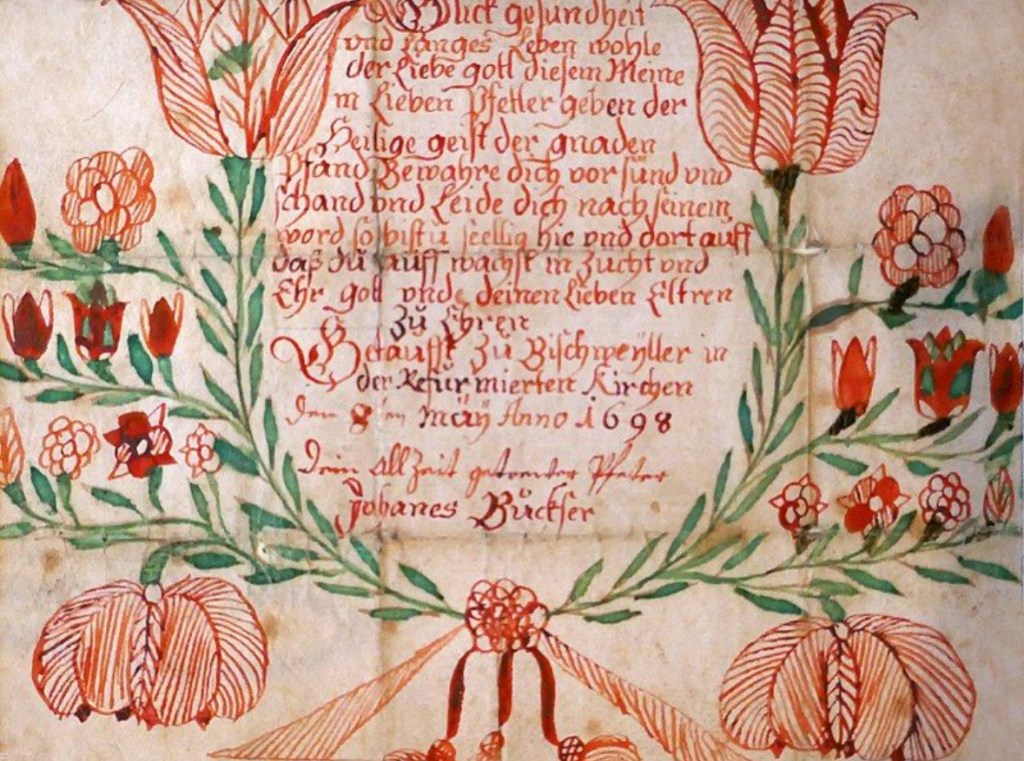 Glück gesundheit
vnd langes Leben wohle
der Liebe gott diesem Meine
m Lieben Pfetter geben der
Heilige geist der gnaden
Pfand Bewahre dich vor sünd vnd
schand vnd Leide dich nach seinem
word so bistu seellig hie vnd dort auff
daß du auff wachst in zucht vnd
Ehr gott vnd deinen Lieben Eltren
Zu Ehren
Getaufft Zu Bischweÿller in
der Refurmierten Kirchen
den 8ten Maÿ Anno 1698
Dein All Zeit getrewter Pfeter
Johanes Bückser